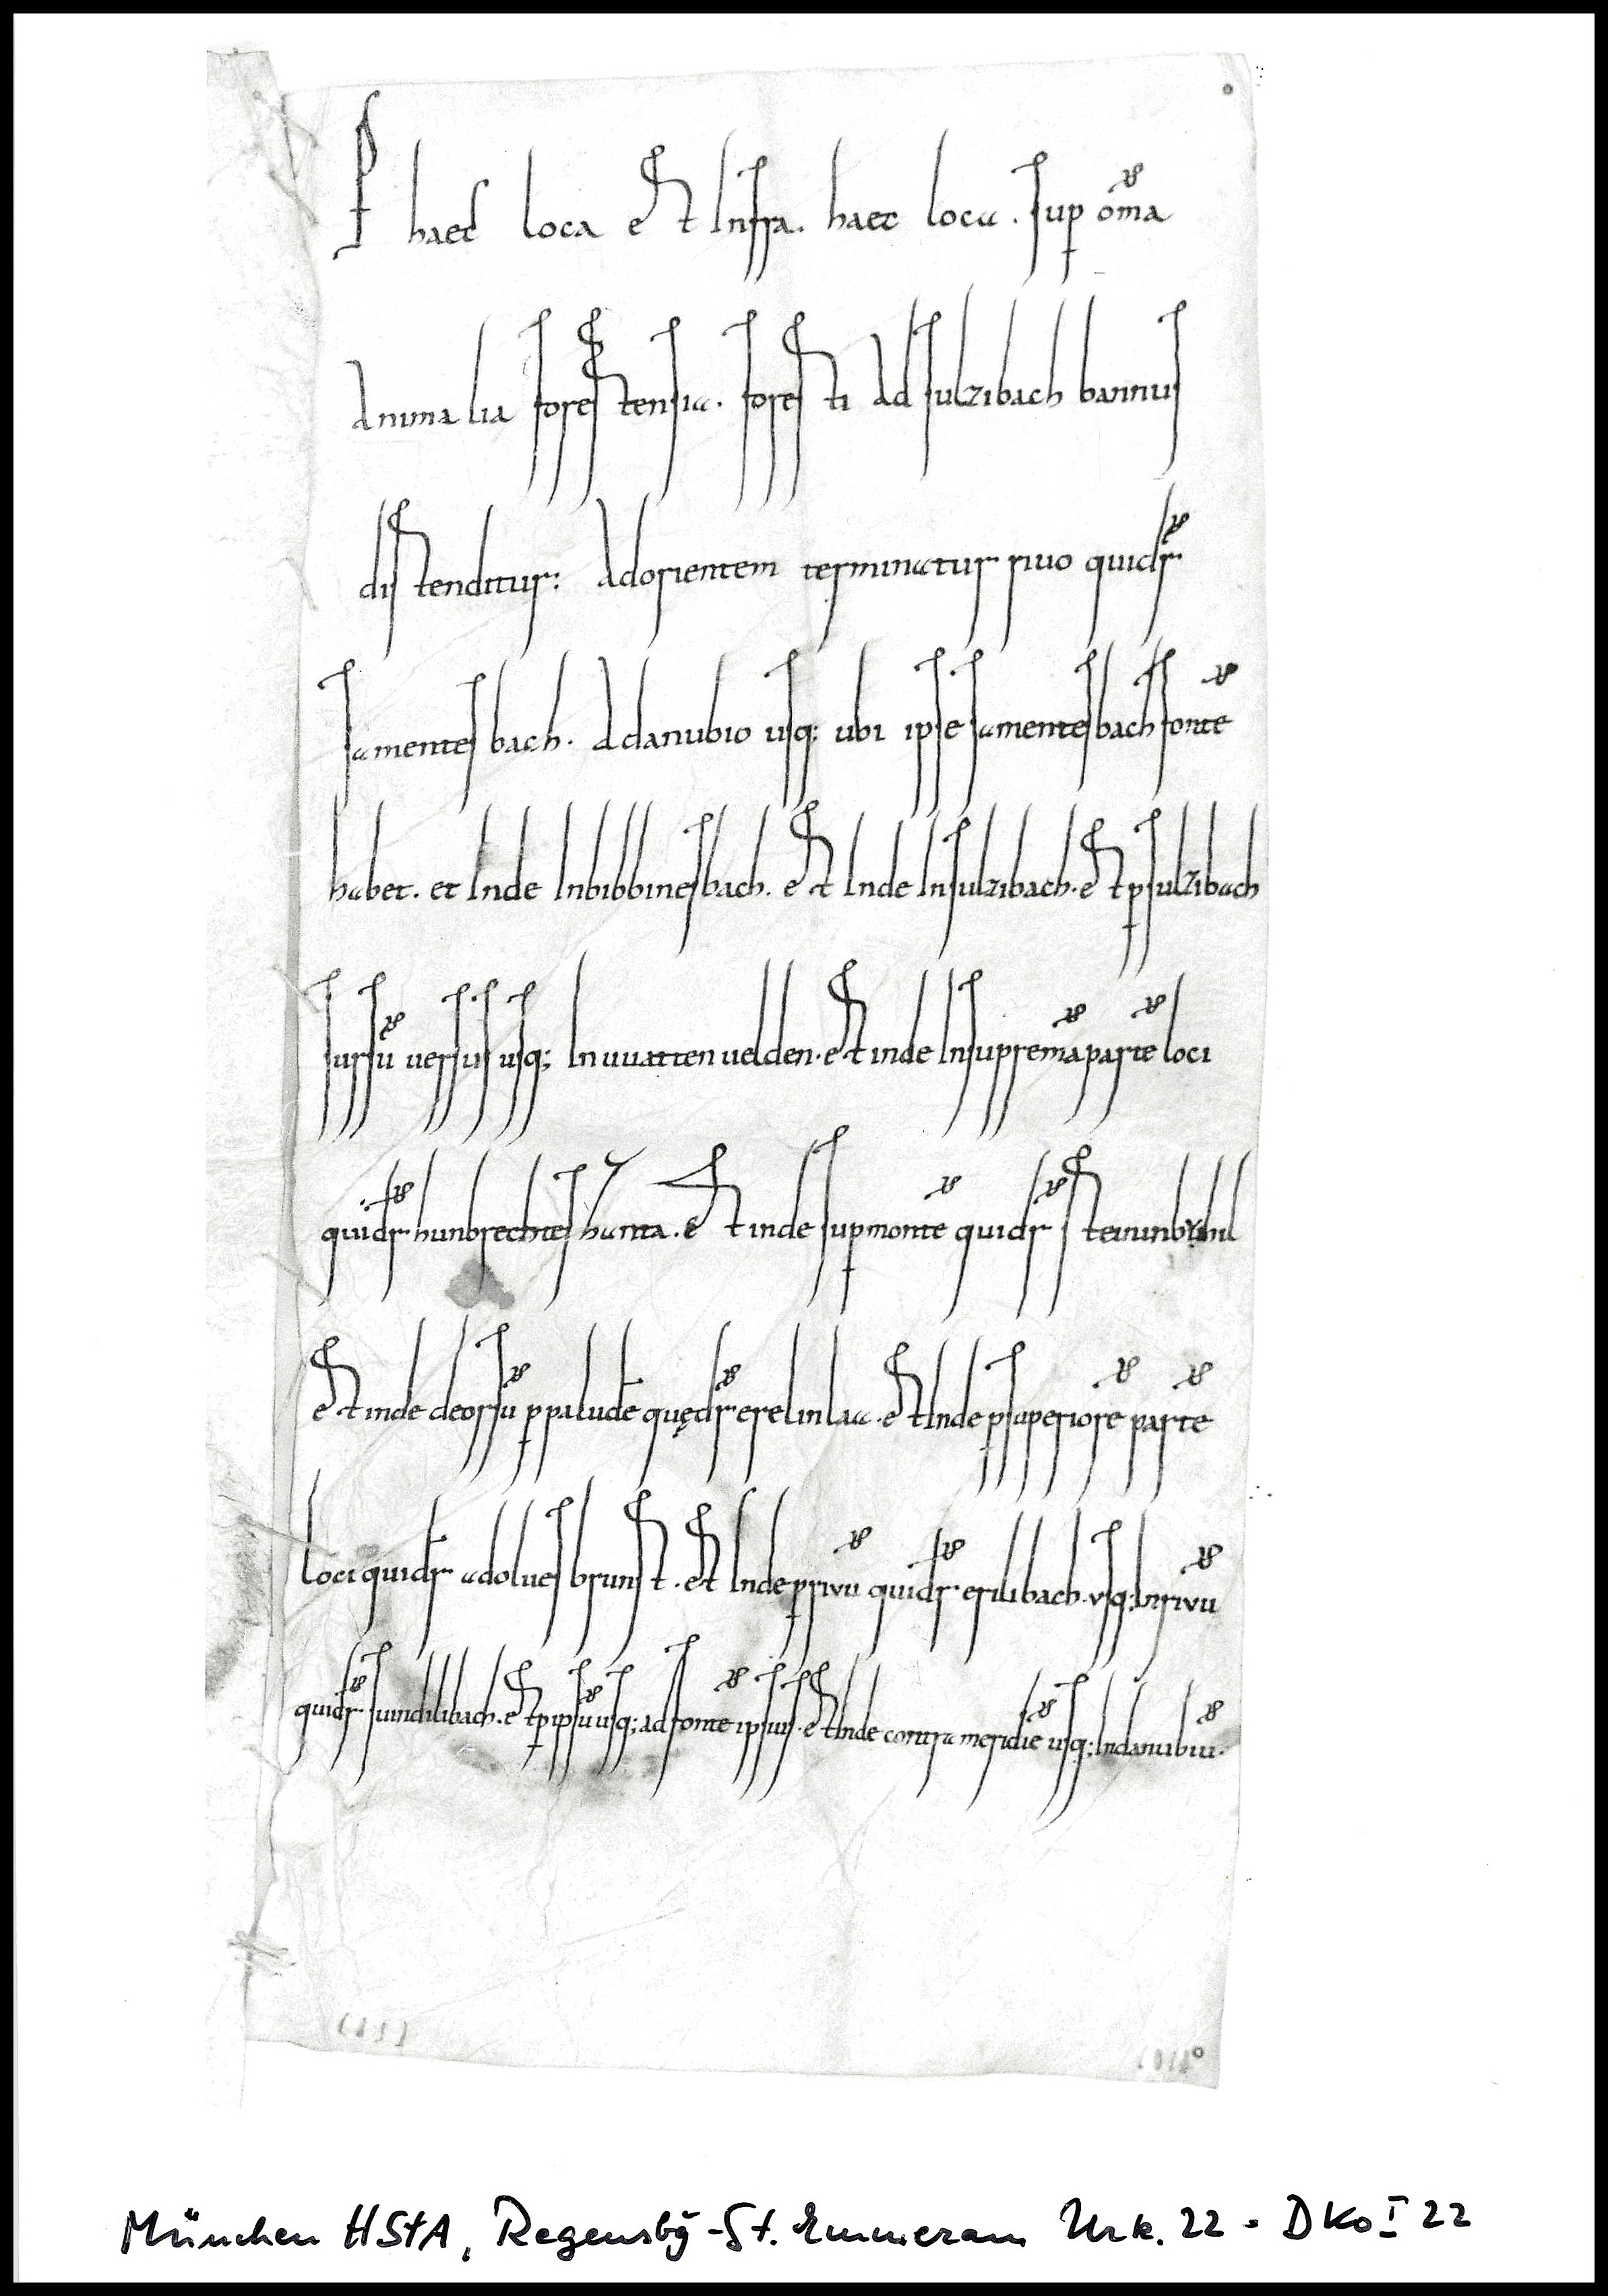 P haec loca et Infra. haec loca. sup oma
Animalia forestensia. foresti Ad sulzibach bannus
distenditur: Adorientem terminatur riuo quidr
samentesbach. Addanubio usq: ubi ipse samentesbach fonte
habet. et Inde Inbibbinesbach. et Inde Insulzibach. et p sulzibach
sursu uersus usq; Inuuattenuelden. et inde Insuprema parte loci
quidr hunbrechteshanta. et inde supmonte quidr
et inde deorsu ppalude quędr erelinlac. et Inde psuperiore parte
loci quidr adoluesbrunst. et Inde priuu quidr erilibach. usq: Inriuu
quidr suindilibach. et pipsu usq; ad fonte ipsius. et Inde contra meridie usq; Indanubiu.
München HStA, Regensbg̃ - St. Emmeram Urk. 22 = DKoI 22